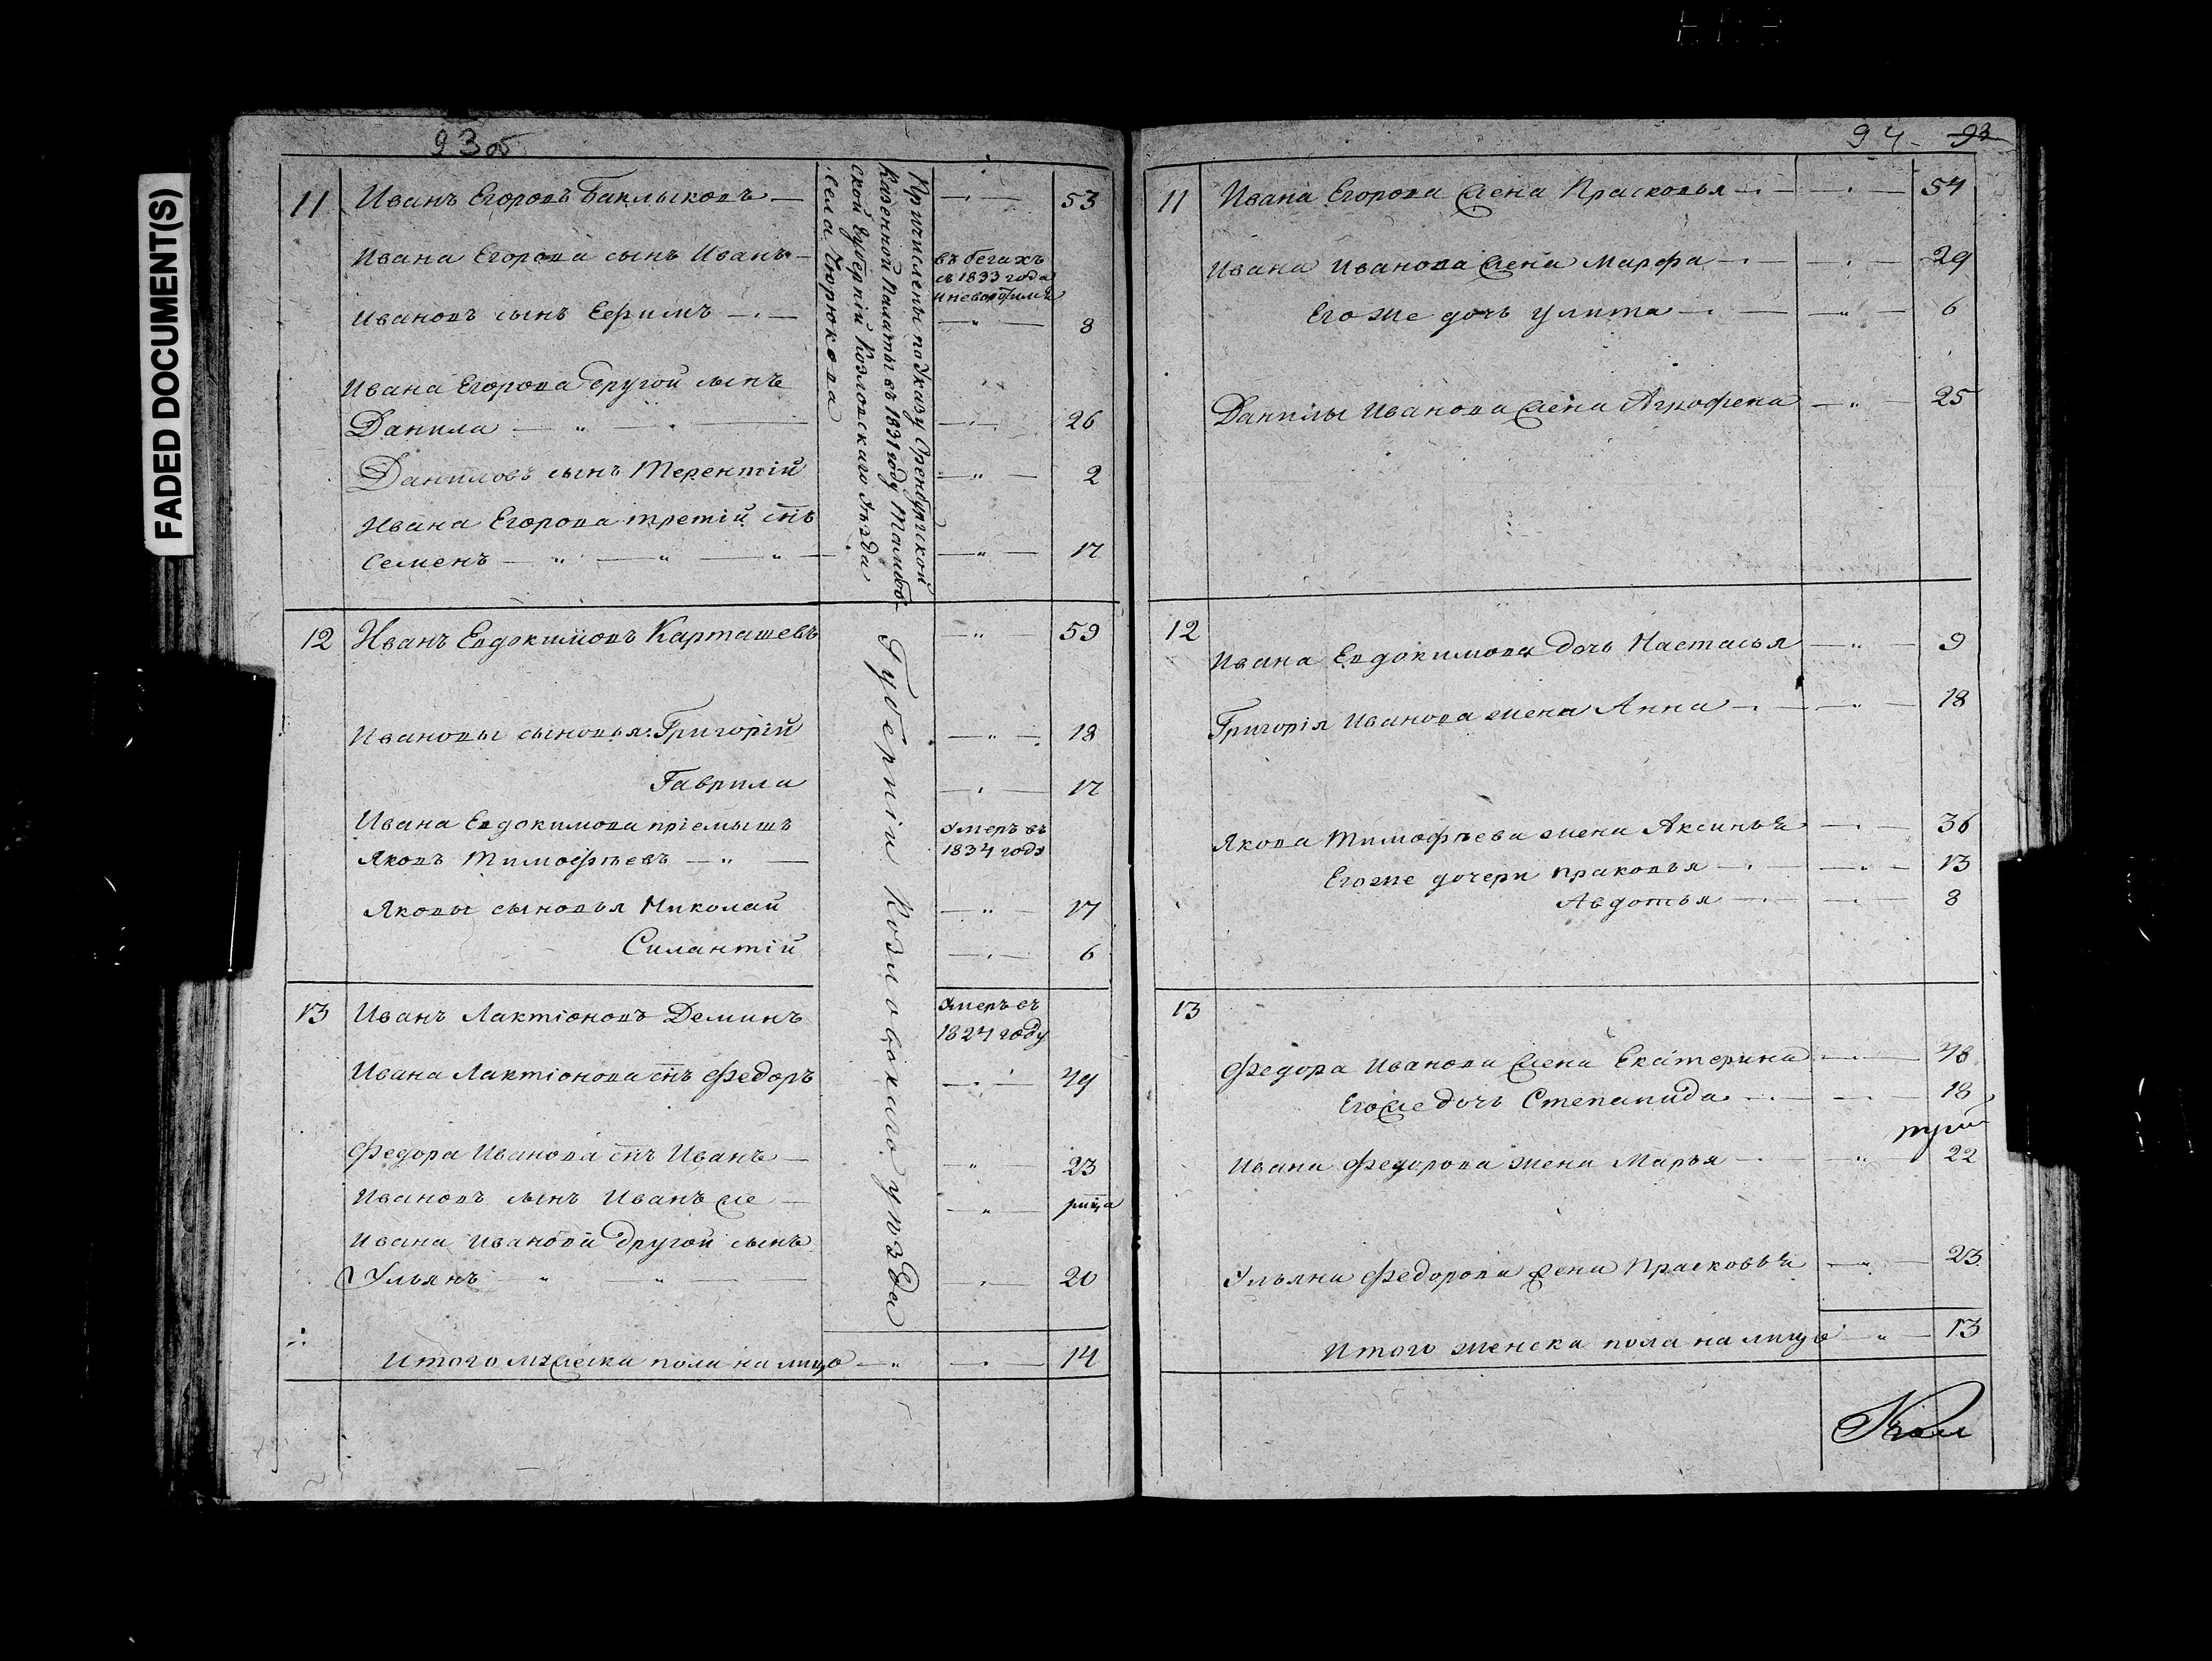 FADED DOCUMENT(S)
93об
11 Иванъ Егоровъ Баклыковъ — 53
Ивана Егорова сынъ Иванъ — въ бегахъ
съ 1833 года
Ивановъ сынъ Ефимъ — 8
Ивана Егорова другой сынъ
Данила — 26
Даниловъ сынъ Терентій — 2
Ивана Егорова третій снъ
Семенъ — 17
Причислены по Указу Оренбургской
Казенной Палаты въ 1831 году Тамбов-
ской Губерніи Козловскаго уѣзда
села Тюрюкова
12 Иванъ Евдокимовъ Карташевъ — 59
Ивановы сыновья: Григорій — 18
Гаврила — 17
Ивана Евдокимова пріемышъ умеръ въ
Яковъ Тимофѣевъ — 1834 году
Яковы сыновья Николай — 17
Силантій — 6
13 Иванъ Лактіоновъ Деминъ умеръ въ
1824 году
Ивана Лактіонова снъ Федоръ — 49
Федора Иванова снъ Иванъ — 23
Ивановъ сынъ Иванъ же —
Ивана Иванова другой сынъ
Ульянъ — 20
Губерніи Козловскаго уѣзда
Итого мужеска пола на лицо — 14
94 93
11 Ивана Егорова жена Прасковья — 54
Ивана Иванова жена Марфа — 29
Его же дочь Улита — 6
Данилы Иванова жена Агрофена — 25
12
Ивана Евдокимова дочь Настасья — 9
Григорія Иванова жена Анна — 18
Якова Тимофѣева жена Аксинья — 36
Его же дочери праковья — 13
Авдотья — 8
13
Федора Иванова жена Екатерина — 48
Его же дочь Степанида — 18
Ивана Федорова жена Марья — 22
Ульяна Федорова жена Прасковья — 23
Итого женска пола на лицо — 13